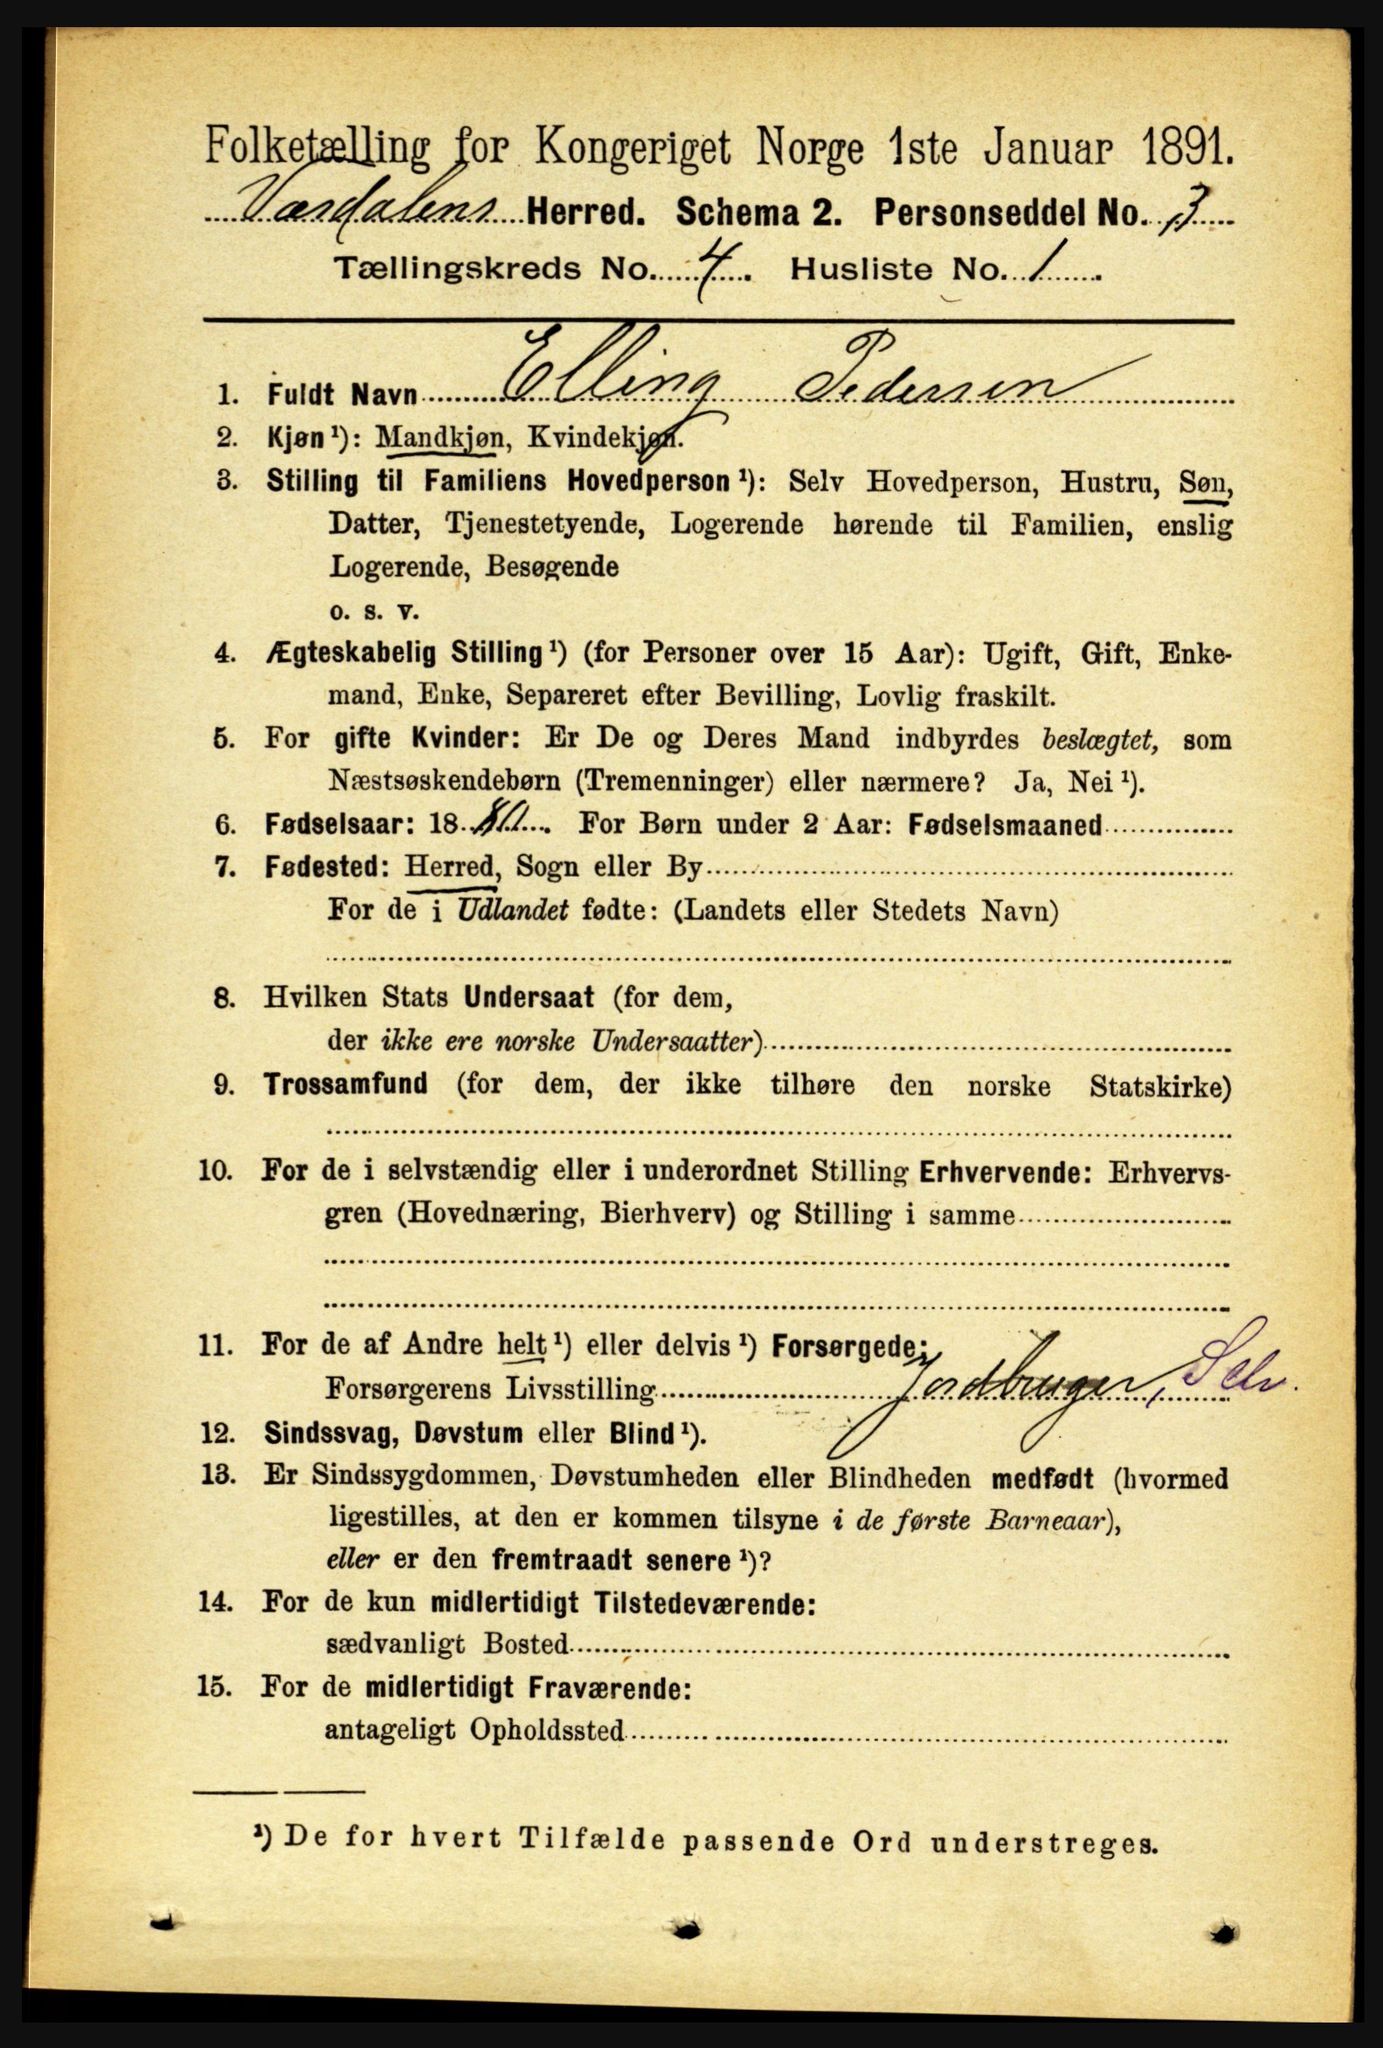 Folketælling for Kongeriget Norge 1ste Januar 1891.
Værdalens Herred. Schema 2. Personseddel No. 3
Tællingskreds No. 4. Husliste No. 1.
1. Fuldt Navn Elling Pedersen
2. Kjøn ¹): Mandkjøn, Kvindekjøn.
3. Stilling til Familiens Hovedperson ¹): Selv Hovedperson, Hustru, Søn,
Datter, Tjenestetyende, Logerende hørende til Familien, enslig
Logerende, Besøgende
o. s. v.
4. Ægteskabelig Stilling ¹) (for Personer over 15 Aar): Ugift, Gift, Enke-
mand, Enke, Separeret efter Bevilling, Lovlig fraskilt.
5. For gifte Kvinder: Er De og Deres Mand indbyrdes beslægtet, som
Næstsøskendebørn (Tremenninger) eller nærmere? Ja, Nei ¹).
6. Fødselsaar: 18 . For Børn under 2 Aar: Fødselsmaaned
7. Fødested: Herred, Sogn eller By
For de i Udlandet fødte: (Landets eller Stedets Navn)
8. Hvilken Stats Undersaat (for dem,
der ikke ere norske Undersaatter)
9. Trossamfund (for dem, der ikke tilhøre den norske Statskirke)
10. For de i selvstændig eller i underordnet Stilling Erhvervende: Erhvervs-
gren (Hovednæring, Bierhverv) og Stilling i samme
11. For de af Andre helt ¹) eller delvis ¹) Forsørgede:
Forsørgerens Livsstilling Jordbruger, Selv.
12. Sindssvag, Døvstum eller Blind ¹).
13. Er Sindssygdommen, Døvstumheden eller Blindheden medfødt (hvormed
ligestilles, at den er kommen tilsyne i de første Barneaar),
eller er den fremtraadt senere ¹)?
14. For de kun midlertidigt Tilstedeværende:
sædvanligt Bosted
15. For de midlertidigt Fraværende:
antageligt Opholdssted
¹) De for hvert Tilfælde passende Ord understreges.